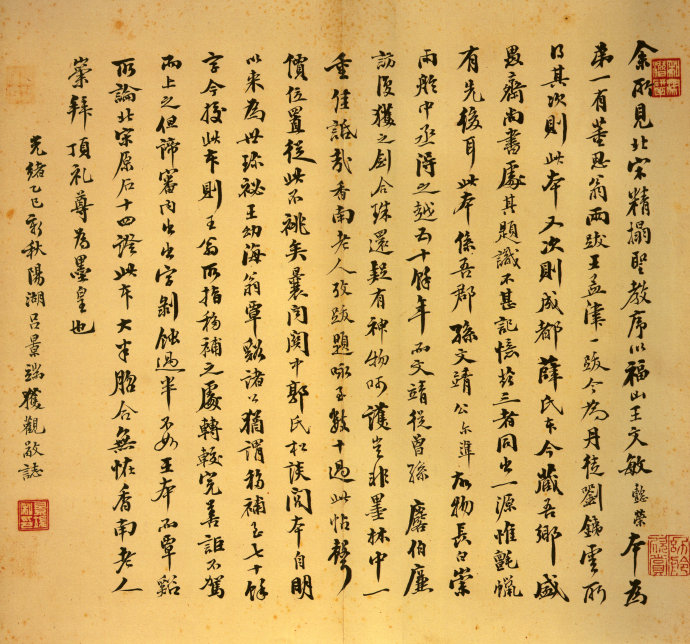 余所見北宋精搨聖教序以福山王文敏懿榮本為
第一有董思翁兩跋王孟津一跋今為丹徒劉銕雲所
得其次則此本又次則成都薛氏本今藏吾鄉盛
愚齋尚書處其題識不甚記憶然三者同出一源惟氈蠟
有先後耳此本係吾郡孫文靖公尒準故物長白崇
雨舲中丞得之越五十餘年而文靖從曾孫麐伯廉
訪復獲之劍合珠還疑有神物呵護豈非墨林中一
重佳話哉香南老人攷跋題咏至數十過此帖聲
價位置從此不祧矣曩閱關中郭氏松談閣本自明
以來為世珍祕王幼海翁覃谿諸公猶謂移補至七十餘
字今挍此本則王翁所指移補之處轉較完善詎不駕
而上之但諦審內出出字剝蝕過半不如王本而覃谿
所論北宋原石十四證此本大半脗合無怪香南老人
崇拜頂礼尊為墨皇也
光緒乙巳新秋陽湖呂景端獲觀敬誌